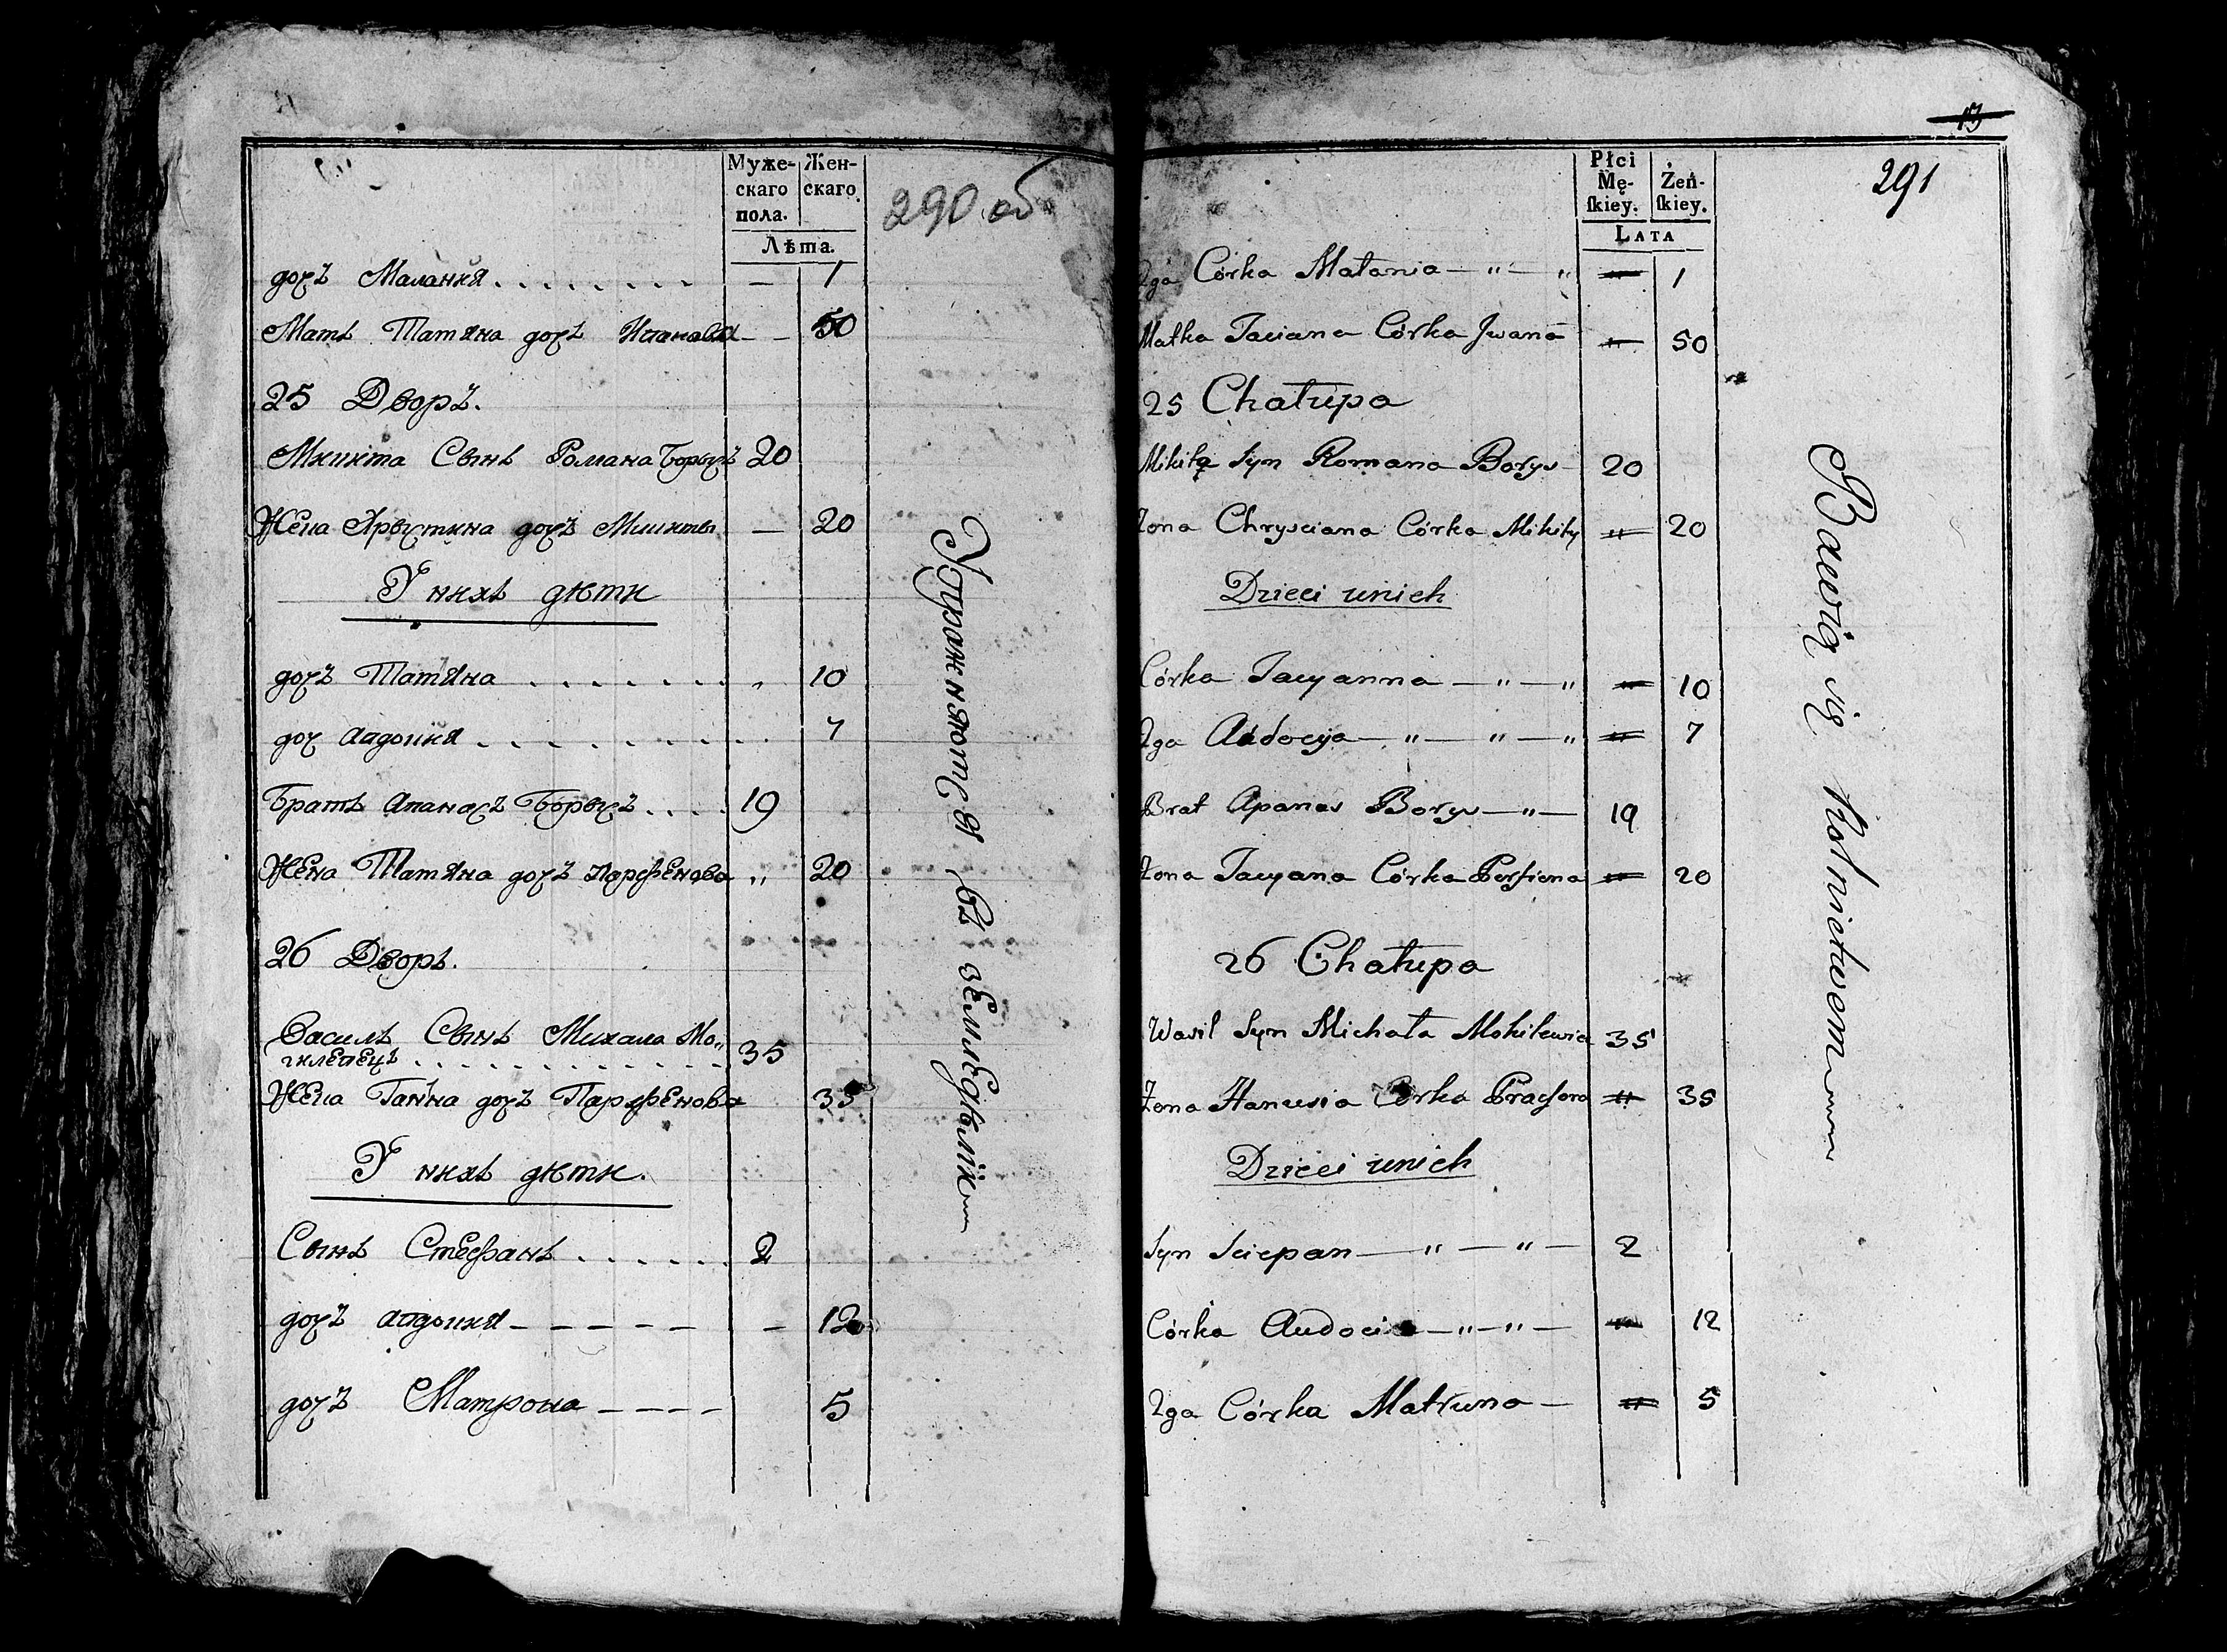 290 об
Муже-
скаго
пола.
Жен-
скаго
Лѣта.
дочъ Малания . . . . . . . . — 1
Мать Татяна дочъ Иванова — — 50
25 Дворъ.
Микита Сынъ Романа Борысъ 20
Жена Хрыстина дочъ Микиты — 20
У нихъ дѣти
дочъ Татяна . . . . . . . „ 10
доч Авдоция . . . . . . . . . 7
Братъ Апанасъ Борысъ . . . . 19
Жена Татяна дочъ Парфенова „ 20
26 Дворъ.
Василь Сынъ Михала Мо„
гилевецъ . . . . . . . . . . . . . 35
Жена Ганна дочъ Парфенова 35
У нихъ дѣти.
Сынъ Стефанъ . . . . . . 2
дочъ Авдоция — — — — — — 12
дочъ Матрона — — — — 5
Упражняются въ земледѣлїи
13
291
Płci
Mę-
ſkiey.
Żeń-
ſkiey.
LATA
2ga Córka Małania — „ — „ „ 1
Matka Taciana Córka Jwana „ 50
25 Chałupa
Mikita Syn Romana Borys 20
Zona Chrysciana Córka Mikity „ 20
Dzieci unich
Córka Tacyanna — „ — „ „ 10
2ga Audocya — „ — „ — „ „ 7
Brat Apanas Borys — „ — 19
Zona Tacyana Córka Perfiena „ 20
26 Chałupa
Wasil Syn Michała Mohilewiec 35
Zona Hanusia Córka „ 35
Dzieci unich
Syn Sciepan — „ — „ — 2
Córka Audocia — „ — „ — „ 12
2ga Córka Matruna — „ 5
Bawią się Rolnictwem